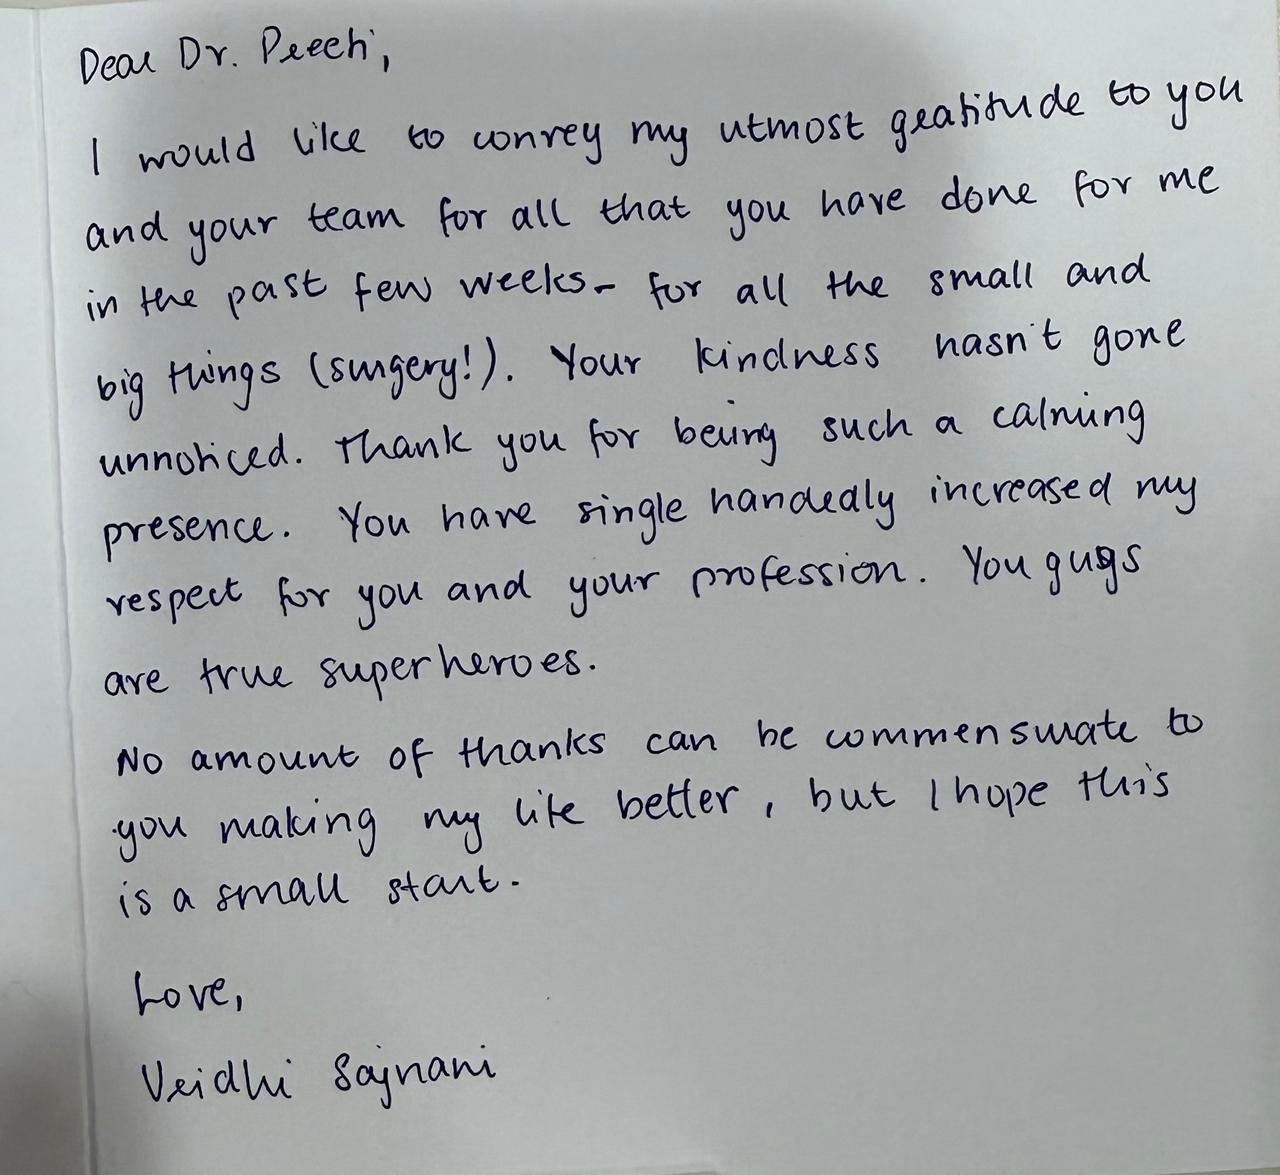 Dear Dr. Preeti,
I would like to convey my utmost gratitude to you
and your team for all that you have done for me
in the past few weeks - for all the small and
big things (surgery!). Your kindness hasn't gone
unnoticed. Thank you for being such a calming
presence. You have single handedly increased my
respect for you and your profession. You guys
are true superheroes.
No amount of thanks can be commensurate to
you making my life better, but I hope this
is a small start.
Love,
Vridhi Sajnani